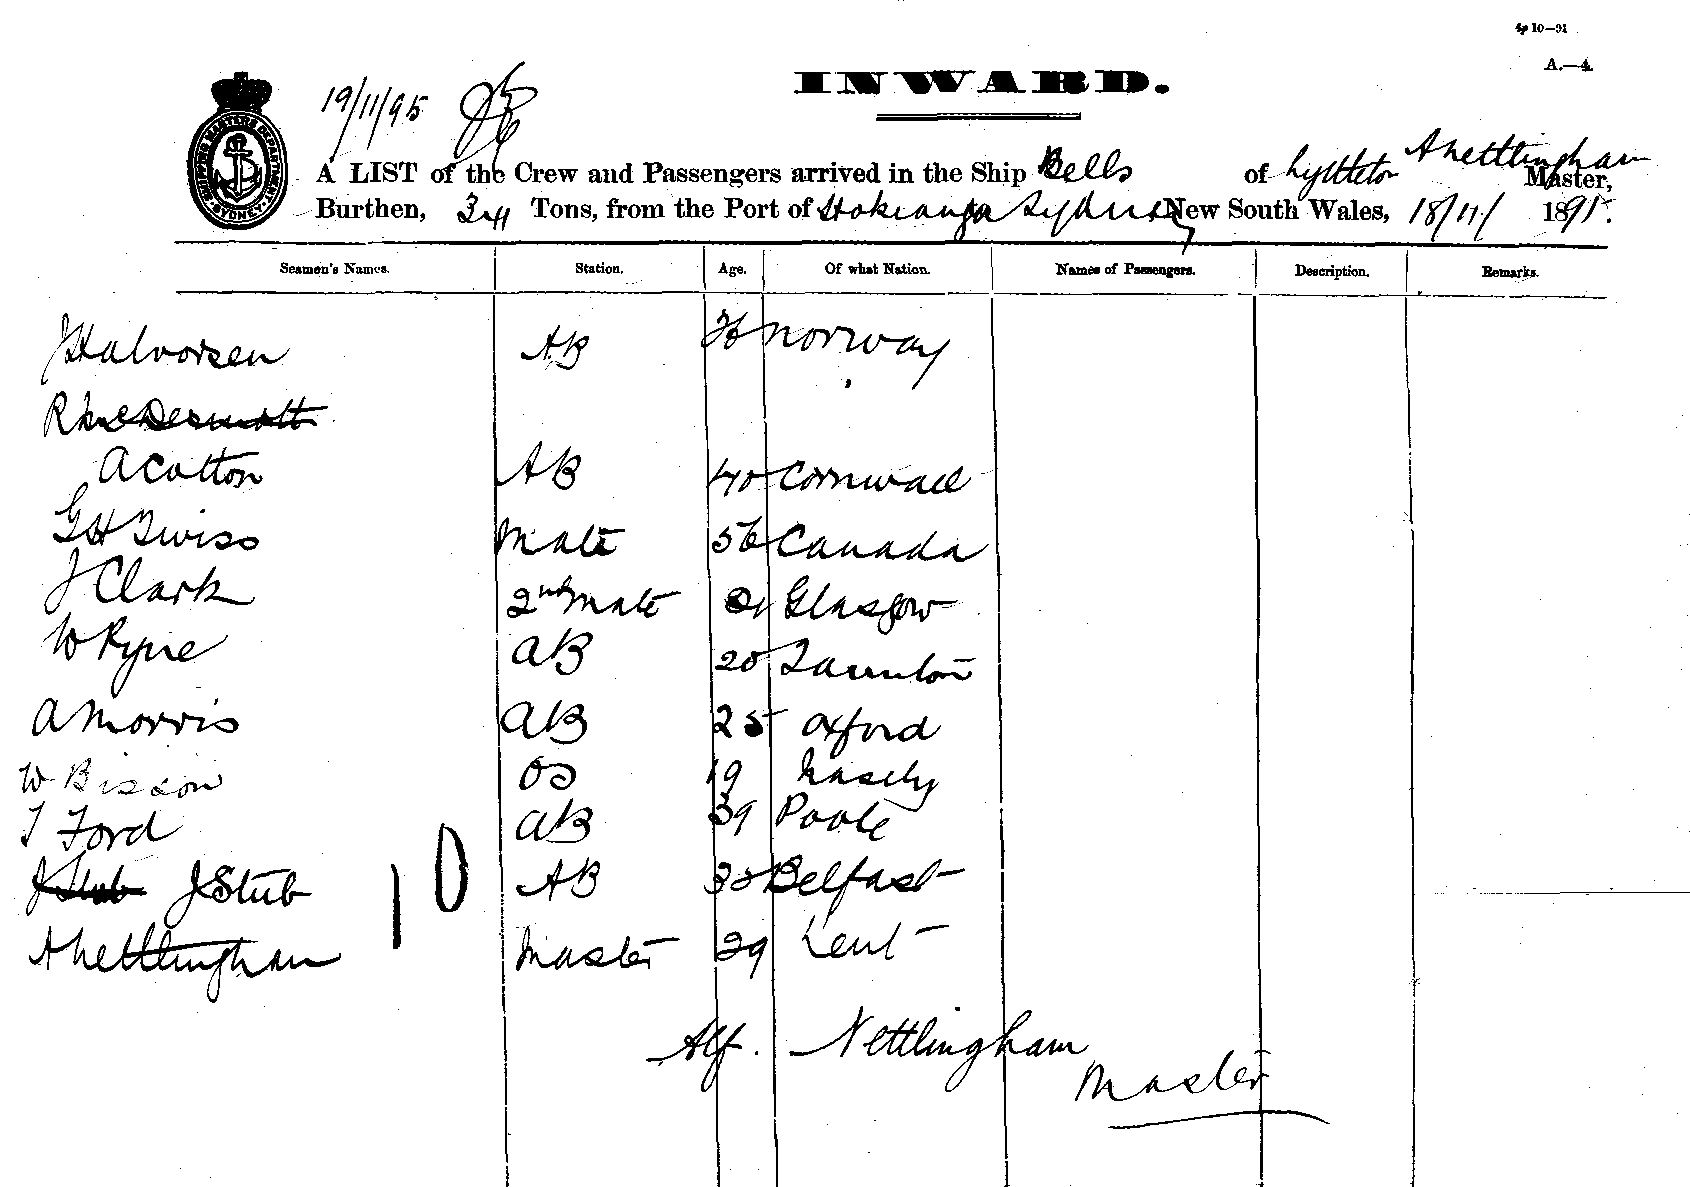 4p 10—91
A.—4.
INWARD.
19/11/95
SHIPPING MASTERS DEPARTMENT SYDNEY
A LIST of the Crew and Passengers arrived in the Ship Bells of Lyttleton A Nettlingham Master,
Burthen, Tons, from the Port of Hokianga Sydney New South Wales, 18/11/ 1895.
Seamen's Names. Station. Age. Of what Nation. Names of Passengers. Description. Remarks.
J Halvorsen AB Norway
R McDermott
A Cotton AB 40 Cornwall
G H Twiss Mate 56 Canada
J Clark 2nd Mate Glasgow
W Pyne AB 20 Taunton
A Morris AB 25 Oxford
W Bisson OS 19
T Ford AB 39 Poole
J Stub J Stub AB 30 Belfast
10
A Nettlingham Master 29 Kent
Alf. Nettlingham
Master